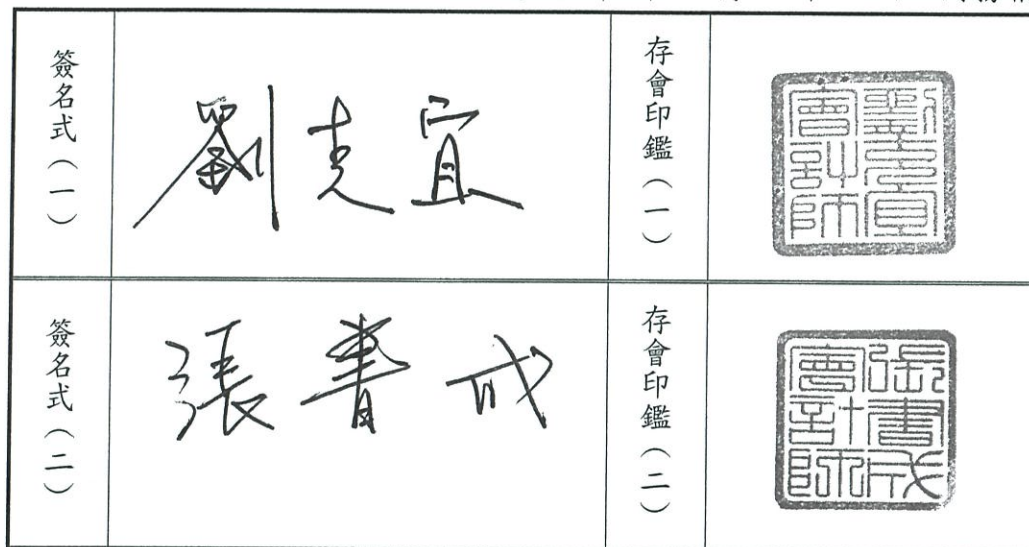 簽名式（一）
劉克宜
存會印鑑（一）
劉克宜會計師
簽名式（二）
張書成
存會印鑑（二）
張書成會計師